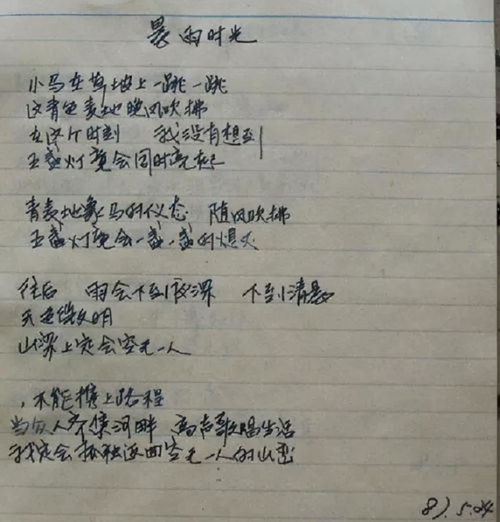 晨雨时光
小马在草坡上一跳一跳
这青色麦地晚风吹拂
在这个时刻 我没有想到
五盏灯竟会同时亮起
青麦地象马的仪态 随风吹拂
五盏灯竟会一盏一盏的熄灭
往后 雨会下到夜深 下到清晨
天色微明
山梁上定会空无一人
，不能携上路程
当众人齐集河畔 高声歌唱生活
我定会孤独返回空无一人的山峦
87.5.24